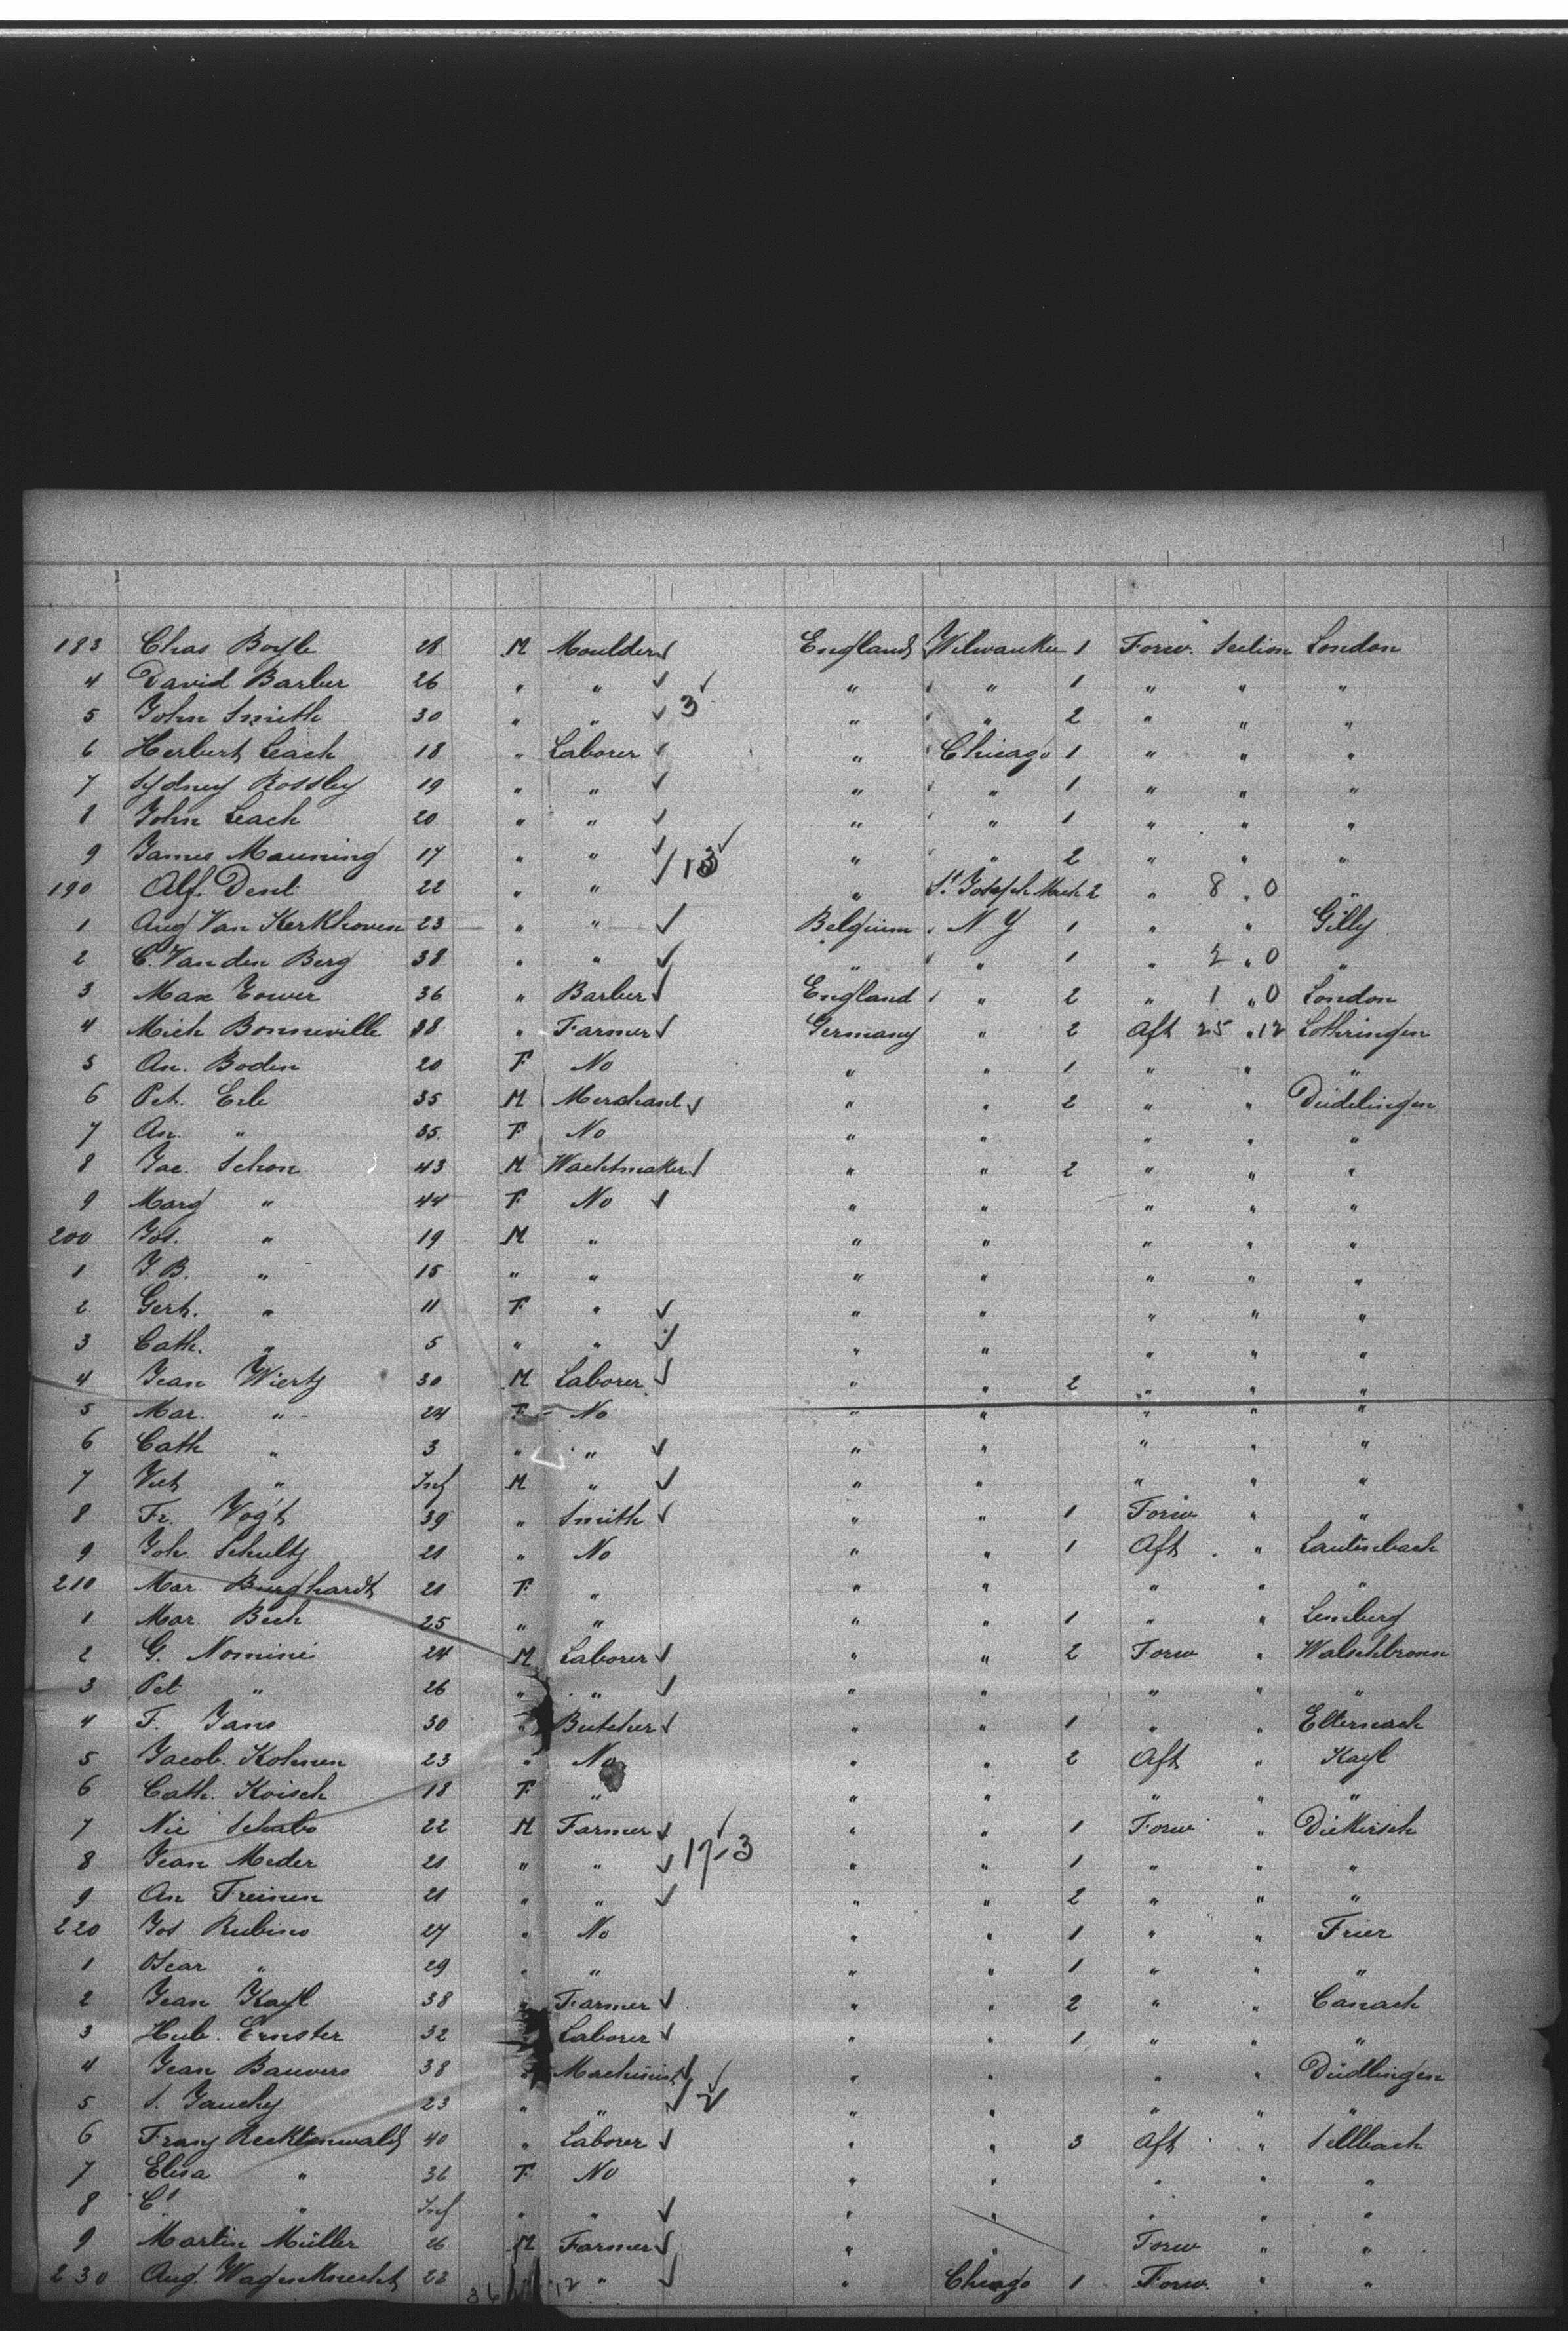 183 Chas Boyle 28 M Moulder England Milwaukee 1 Forw. Section London
4 David Barber 26 " " " " 1 " " "
3
5 John Smith 30 " " " " 2 " " "
6 Herbert Leach 18 " Laborer " Chicago 1 " " "
7 Sydney Rossley 19 " " " " 1 " " "
8 John Leach 20 " " " " 1 " " "
9 James Manning 17 " " " " 2 " " "
13
190 Alf. Dent 22 " " " St. Joseph 2 " 8 " 0 "
1 Aug Van Kerkhoven 23 " " Belgium N Y 1 " " Gilly
2 C. Van den Berg 38 " " " " 1 " 2 " 0 "
3 Max Tower 36 " Barber England " 2 " 1 " 0 London
4 Mich Bonneville 38 " Farmer Germany " 2 Aft 25 " 12 Lothringen
5 An. Boden 20 F No " " 1 " " "
6 Pet. Erb 35 M Merchant " " 2 " " Düdelingen
7 An. " 35 F No " " " " "
8 Jac. Schon 43 M Wachtmaker " " 2 " " "
9 Marg " 44 F No " " " " "
200 Jos. " 19 M " " " " " "
1 J. B. " 15 " " " " " " "
2 Gert. " 11 F " " " " " "
3 Cath. " 5 " " " " " " "
4 Jean Wiertz 30 M Laborer " " 2 " " "
5 Mar. " 24 F No " " " " "
6 Cath " 3 " " " " " " "
7 Vict " Inf M " " " " " "
8 Fr. Vogt 39 " Smith " " 1 Forw " "
9 Joh. Schultz 21 " No " " 1 Aft " Lautenbach
210 Mar Burghardt 21 F " " " " " "
1 Mar. Bech 25 " " " " 1 " " Lemberg
2 G. Nominé 24 M Laborer " " 2 Forw " Walschbronn
3 Pet " 26 " " " " " " "
4 F. Jans 30 " Butcher " " 1 " " Elternach
5 Jacob. Kohnen 23 " No " " 2 Aft " Kayl
6 Cath. Koisch 18 F " " " " " "
7 Nic Schabo 22 M Farmer " " 1 Forw " Diekirsch
17-3
8 Jean Meder 21 " " " " 1 " " "
9 An Freinen 21 " " " " 2 " " "
220 Jos Rubino 27 " No " " 1 " " Trier
1 Oscar " 29 " " " " 1 " " "
2 Jean Kayl 38 " Farmer " " 2 " " Canach
3 Hub. Ernster 32 " Laborer " " 1 " " "
4 Jean Bauvers 38 " Machinist " " " " Düdlingen
2
5 S. Gauchy 23 " " " " " " "
6 Franz Recktenwald 40 " Laborer " " 3 Aft " Sellbach
7 Elisa " 36 F No " " " " "
8 " Inf " " " " " " "
9 Martin Müller 26 M Farmer " " Forw " "
230 Aug. Wagenknecht 23 " " Chicago 1 Forw. " "
36 12